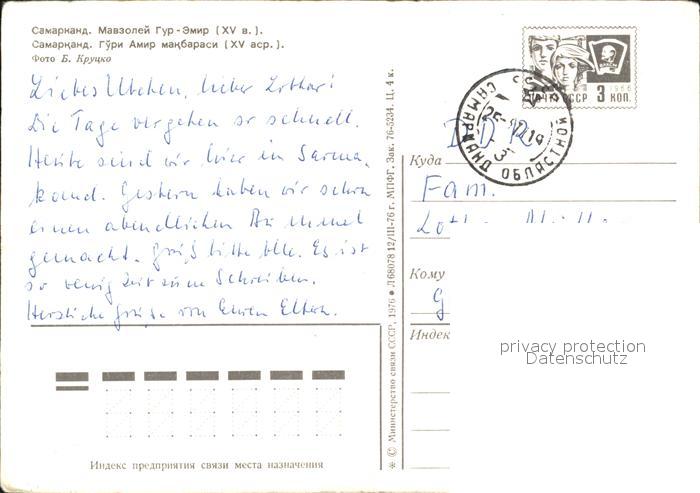 Самарканд. Мавзолей Гур-Эмир (XV в.).
Самарқанд. Гўри Амир мақбараси (XV аср.).
Фото Б. Круцко
Liebes Utchen, lieber Lothar!
Die Tage vergehen so schnell.
Heute sind wir hier in Sarma-
kand. Gestern haben wir schon
einen abendlichen Bummel
gemacht. Grüß bitte alle. Es ist
so wenig Zeit zum Schreiben.
Herzliche Grüße von Euren Eltern.
Индекс предприятия связи места назначения
* © Министерство связи СССР, 1976 * Л 68078 12/III-76 г. МПФГ. Зак. 76-3234. Ц. 4 к.
ПОЧТА СССР 3 КОП.
1966
САМАРКАНД ОБЛАСТНОЙ
DDR
Куда
Fam.
Кому
G
Индекс
privacy protection
Datenschutz